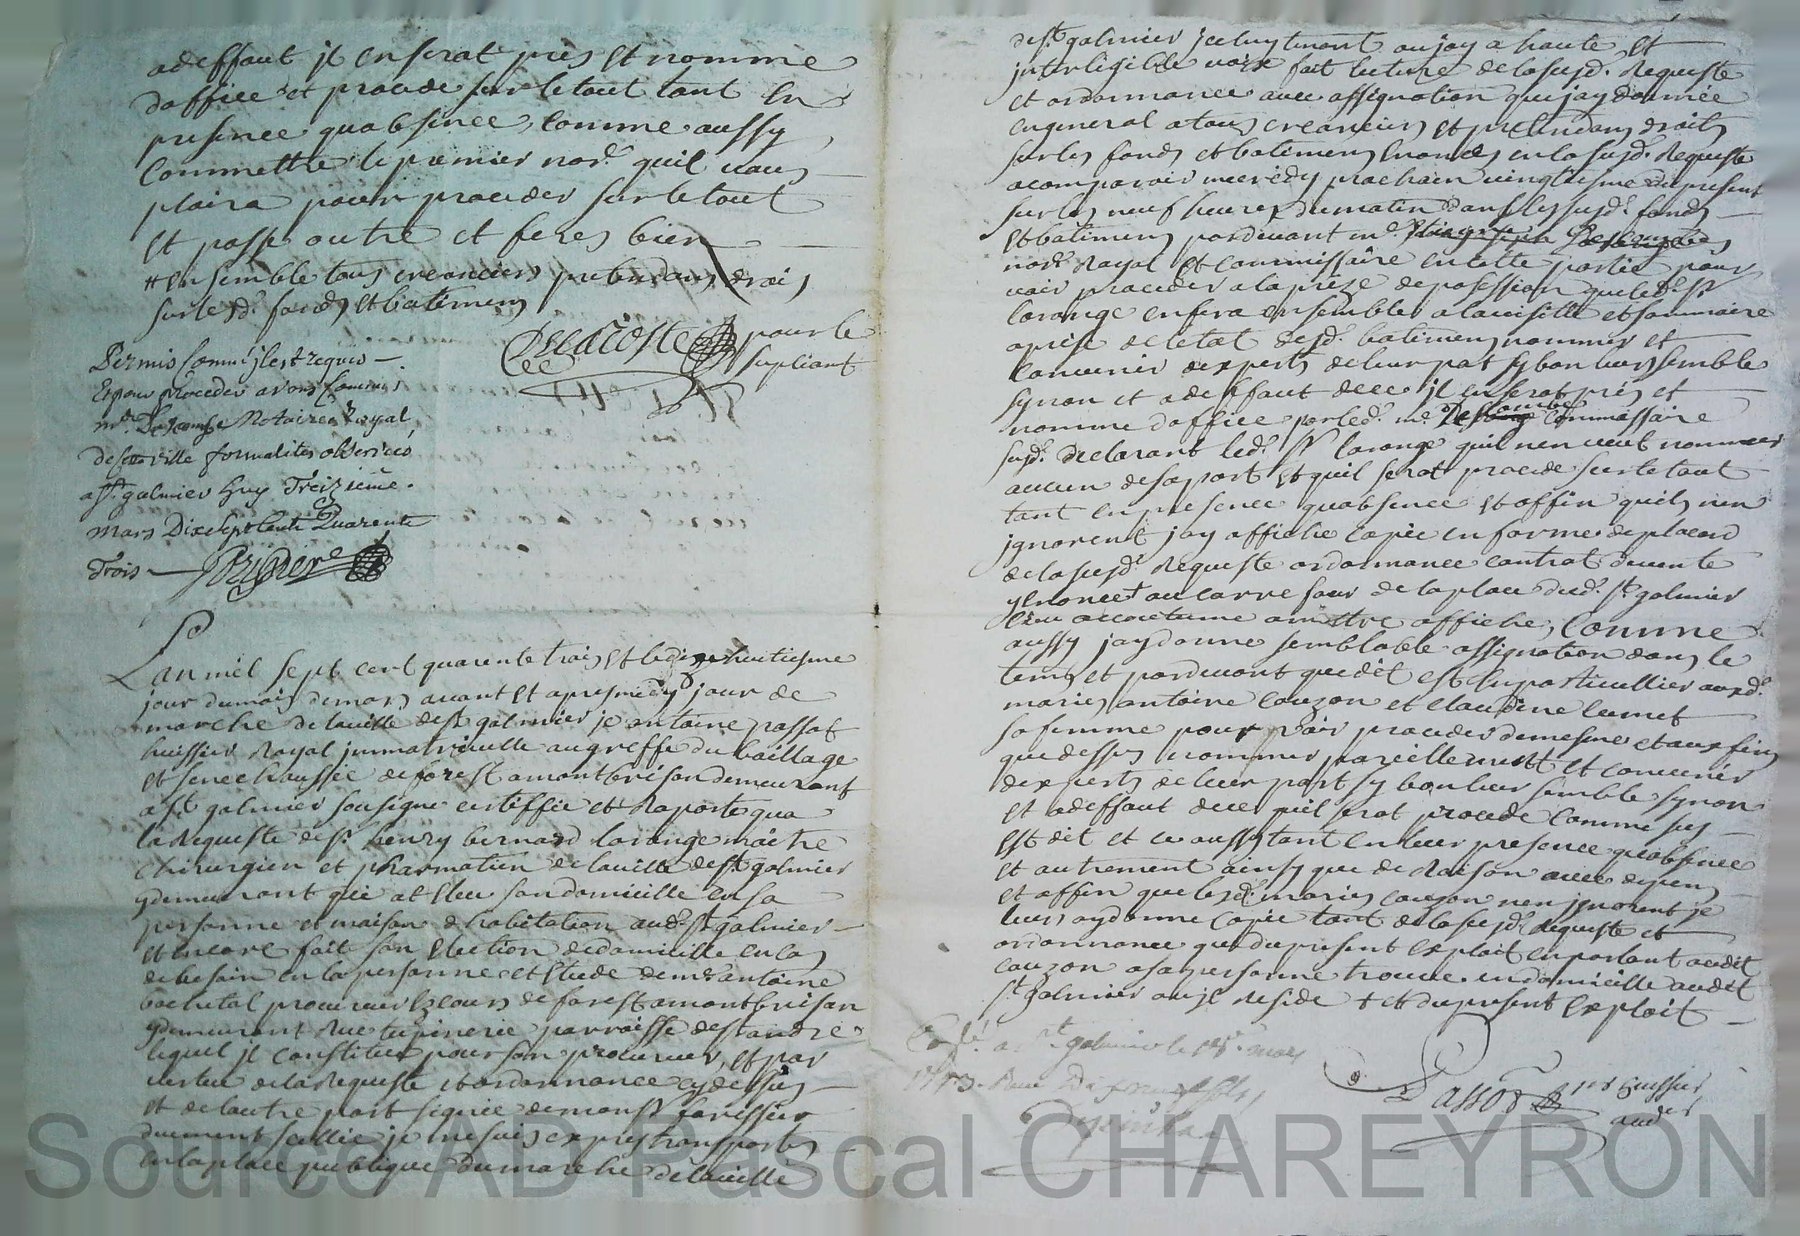 adeffaut jl enserat pris et nomme
doffice et procede sur le tout tant en
presence quabsence, comme aussy
commettre le premier nore. quil vous
plaira pour proceder sur le tout
et passe outre et feres bien
# ensemble tous creanciers pretendans drois
sur lesd. fonds et batimens
Delacoste pour le
supliant
Permis comm' jl est requis
Et pour proceder avons commis
me. Descombe Notaire Royal
de cette ville formalites observées
a st. galmier huy Treizieme.
mars Dixsept cent Quarente
Trois
Lan mil sept cent quarente trois et le dixhuitiesme
jour du mois de mars avant et apres midy jour de
marche de la ville de st galmier je antoine passot
huissier Royal jmmatriculle au greffe du baillage
et senechaussée de forest a montbrison demeurant
a st galmier sousigne certiffie et Raporte qua
la Requeste de sr. henry bernard larange maitre
chirurgien et pharmatien de la ville de st galmier
y demeurant qui at eleu son domicille en sa
personne et maison dhabitation aud. st galmier
et encore fait son election de domicille en cas
de besoin en la personne et etude de me antoine
procureur es cours de forest a montbrison
y demeurant Rue tupinerie parroisse de st andre
lequel jl constitue pour son procureur, et par
vertu de la Requeste et ordonnance cy dessus
et de lautre part signée de monsr
duement scellée je me suis expres transporté
en la place publique du marche de la ville
de st galmier jcelluy tenant ou jay a haute et
jntelligible voix fait lecture de la susd. Requeste
et ordonnance avec assignation que jay donnée
en general a tous creanciers et pretendans droits
sur les fonds et batimens enoncés en la susd. Requeste
a comparoir mecredy prochain vingtiesme du present
sur les neuf heures du matin dans les susd. fonds
et batimens pardevant me.
nore. Royal et commissaire en cette partie pour
voir proceder a la prize de posession que led. sr.
larange en fera ensemble a la visitte et sommaire
aprise de letat desd. batimens nommer et
convenir dexperts de leur part sy bon leur semble
synon et a deffaut de ce jl en serat pris et
nomme doffice par led. me. Descombe commissaire
susd. declarant led. sr larange quil nen veut nommer
aucun de sa part et quil serat procede sur le tout
tant en presence quabsence et affin quils nen
jgnorent jay affiche copie en forme de placard
de la susd. Requeste ordonnance contrat de vente
y enoncé au carre four de la place dud. st galmier
lieu accoutume a mettre affiche, comme
aussy jay donne semblable assignation dans le
tems et pardevant que dit est en particullier aux d.
maries antoine couzon et claudine
sa femme pour voir proceder de mesme et aux fins
que dessus nommer pareillement et convenir
dexperts de leur part sy bon leur semble synon
et a deffaut de ce quil serat procede comme sus
est dit et ce aussy tant en leur presence quabsence
et autrement ainsy que de Raison avec depens
et affin que lesd. maries couzon nen jgnorent je
leurs ay donne copie tant de la susd. Requeste et
ordonnance que du present exploit en parlant audit
couzon a sa personne trouve en domicille audit
st galmier ou jl Reside + et du present exploit
Conlé. a st. galmier le mars
1743. Reçu
Passot pr huissier
aud.
Source AD Pascal CHAREYRON